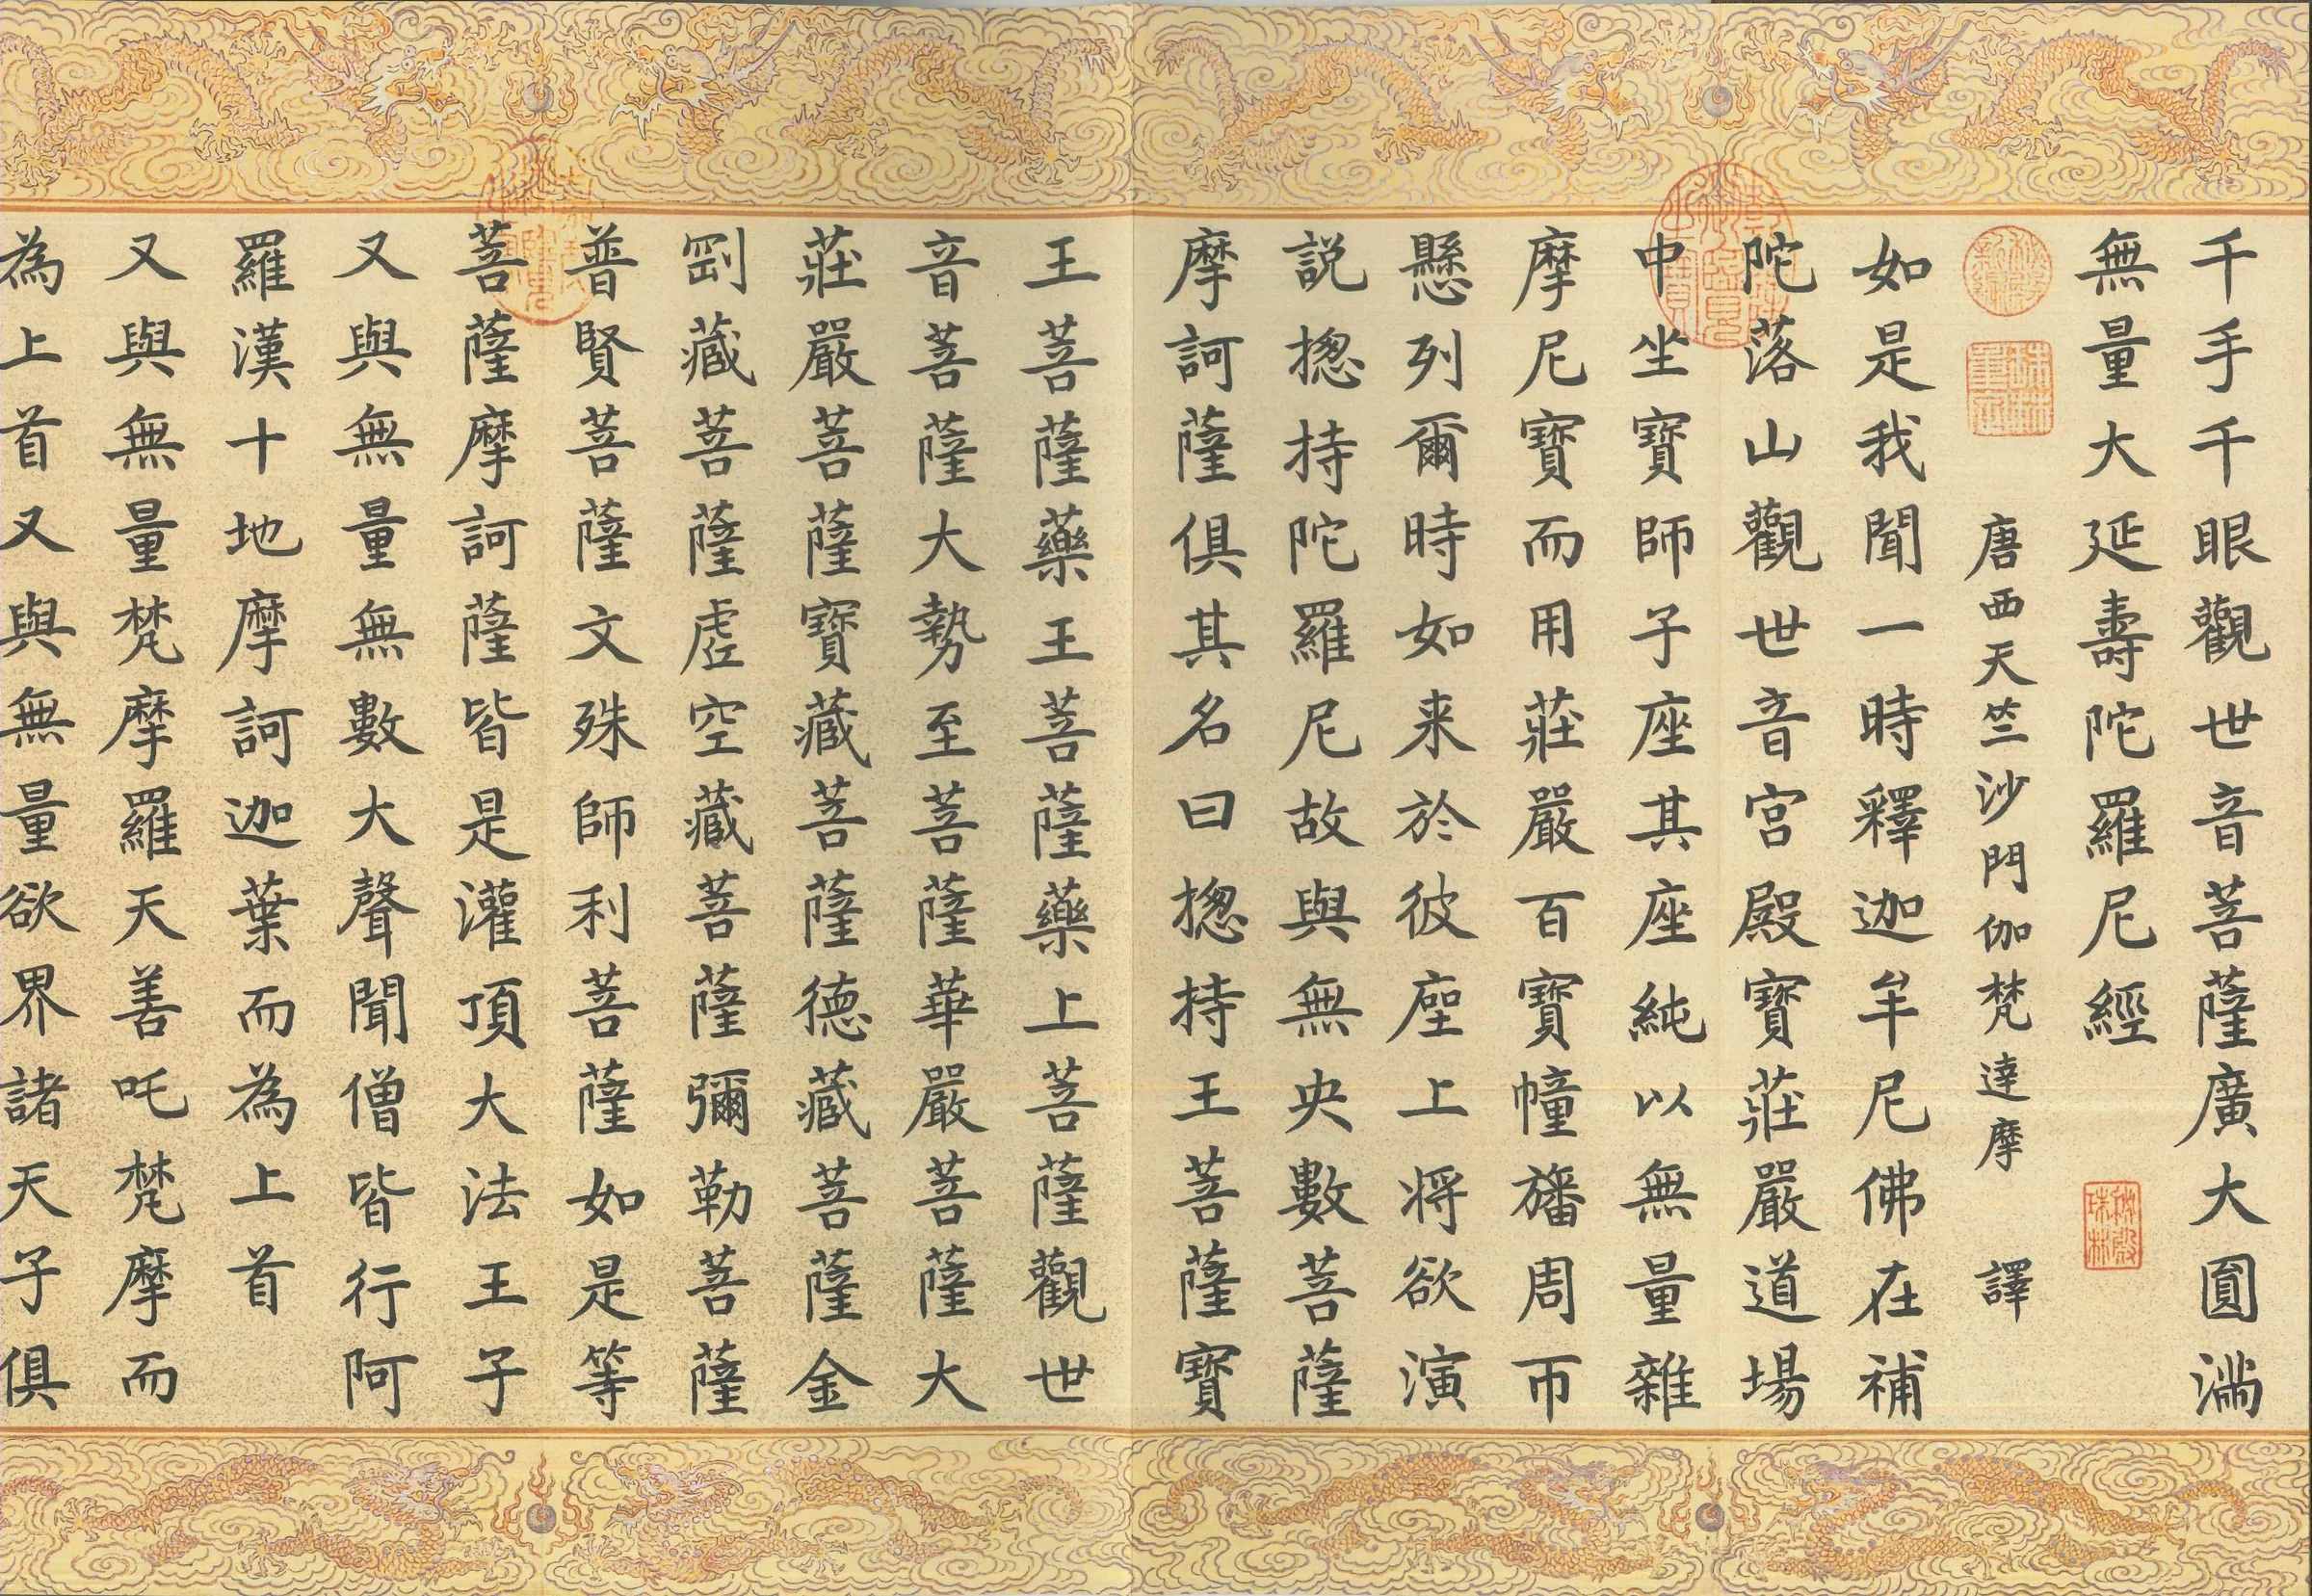 千手千眼觀世音菩薩廣大圓滿
無量大延壽陀羅尼經
秘殿珠林
唐西天竺沙門伽梵達摩 譯
秘殿新編
珠林重定
如是我聞一時釋迦牟尼佛在補
陀落山觀世音宮殿寶莊嚴道場
乾隆御覽之寶
中坐寶師子座其座純以無量雜
摩尼寶而用莊嚴百寶幢旛周帀
懸列爾時如来於彼座上将欲演
説揔持陀羅尼故與無央數菩薩
摩訶薩俱其名曰揔持王菩薩寶
王菩薩藥王菩薩藥上菩薩觀世
音菩薩大勢至菩薩華嚴菩薩大
莊嚴菩薩寶藏菩薩德藏菩薩金
剛藏菩薩虛空藏菩薩彌勒菩薩
普賢菩薩文殊師利菩薩如是等
菩薩摩訶薩皆是灌頂大法王子
又與無量無數大聲聞僧皆行阿
羅漢十地摩訶迦葉而為上首
又與無量梵摩羅天善吒梵摩而
為上首又與無量欲界諸天子俱